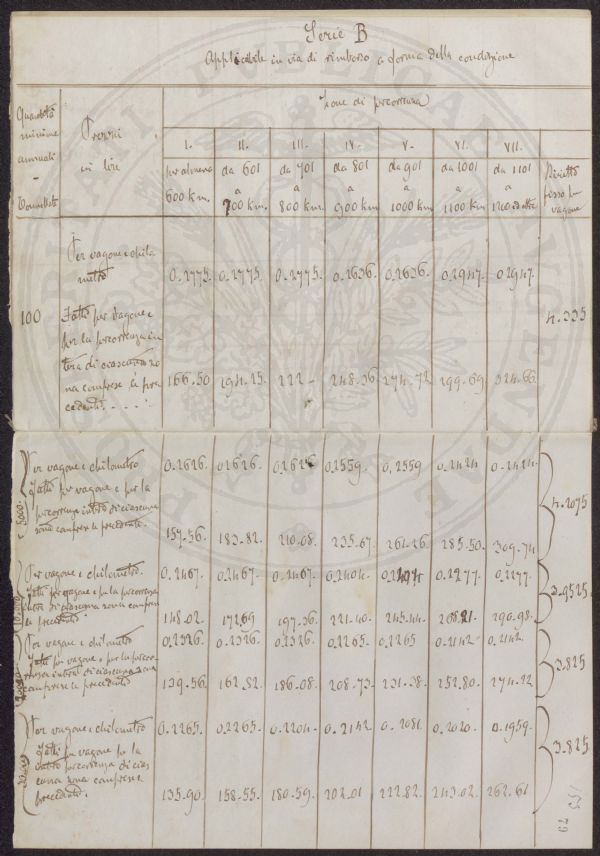 Serie B
Applicabile in via di rimborso a forma della condizione
Quantità minime annuali - Tonnellate
Prezzi in lire
Zone di percorrenza
I. II. III. IV. V. VI. VII.
per almeno 600 km. da 601 a 700 km. da 701 a 800 km. da 801 a 900 km. da 901 a 1000 km. da 1001 a 1100 km. da 1101 a 1200 ed oltre
Diritto fisso per vagone
Per vagone e chilo
metro
0.2775. 0.2775. 0.2775. 0.2636. 0.2636. 0.2947.
100
Tassa per vagone e
per la percorrenza in
tera di ciascuna zo
na comprese le pre
cedenti.
4.335
166.50 194.25 222 - 248.36 274.72 324.66
5000
Per vagone e chilometro 0.2626. 0.2626. 0.2626 0.2559. 0.2559 0.2424 0.2424
Tassa per vagone e per la
percorrenza intera di ciascuna
zona comprese le precedenti.
4.2075
157.56. 183.82. 210.08. 235.67. 261.26 285.50. 309.74
10.000
Per vagone e chilometro. 0.2467. 0.2467. 0.2467. 0.2404. 0.2404 0.2277. 0.2277.
Tassa per vagone e per la percorrenza
intera di ciascuna zona comprese
le precedenti
3.9525
148.02. 172.69 197.36. 221.40. 245.44 290.98.
Per vagone e chilometro 0.2326. 0.2326. 0.2326. 0.2265. 0.2265 0.2142 0.2142
Tassa per vagone e per la percor
renza intera di ciascuna zona
comprese le precedenti
3.825
139.56. 162.82 186.08. 208.73. 231.38. 252.80. 274.22
Per vagone e chilometro 0.2265. 0.2265. 0.2204. 0.2142 0.2081. 0.2020. 0.1959.
Tassa per vagone per la
intera percorrenza di cias
cuna zona comprese le
precedenti.
3.825
135.90. 158.55. 180.59. 202.01 222.82. 243.02. 262.61
79